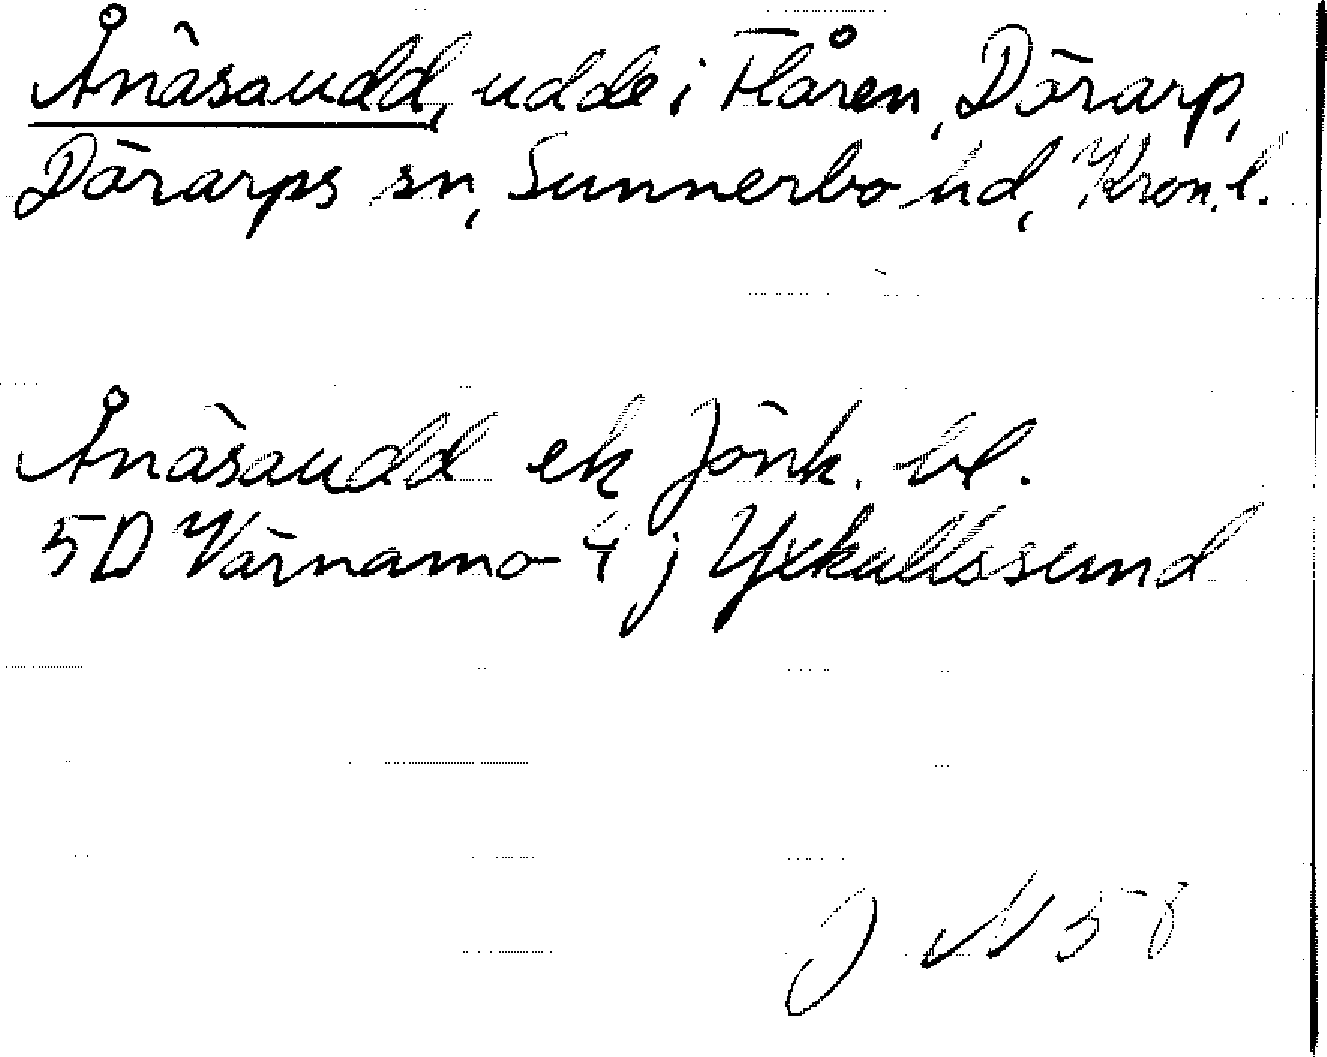 Ånäsaudd, udde i Flåren, Dörarp,
Dörarps sn, Sunnerbo hd, Kron.l.
Ånäsaudd ek Jönk. bl.
5D Värnamo 4 j Yxkullssund
J N 58